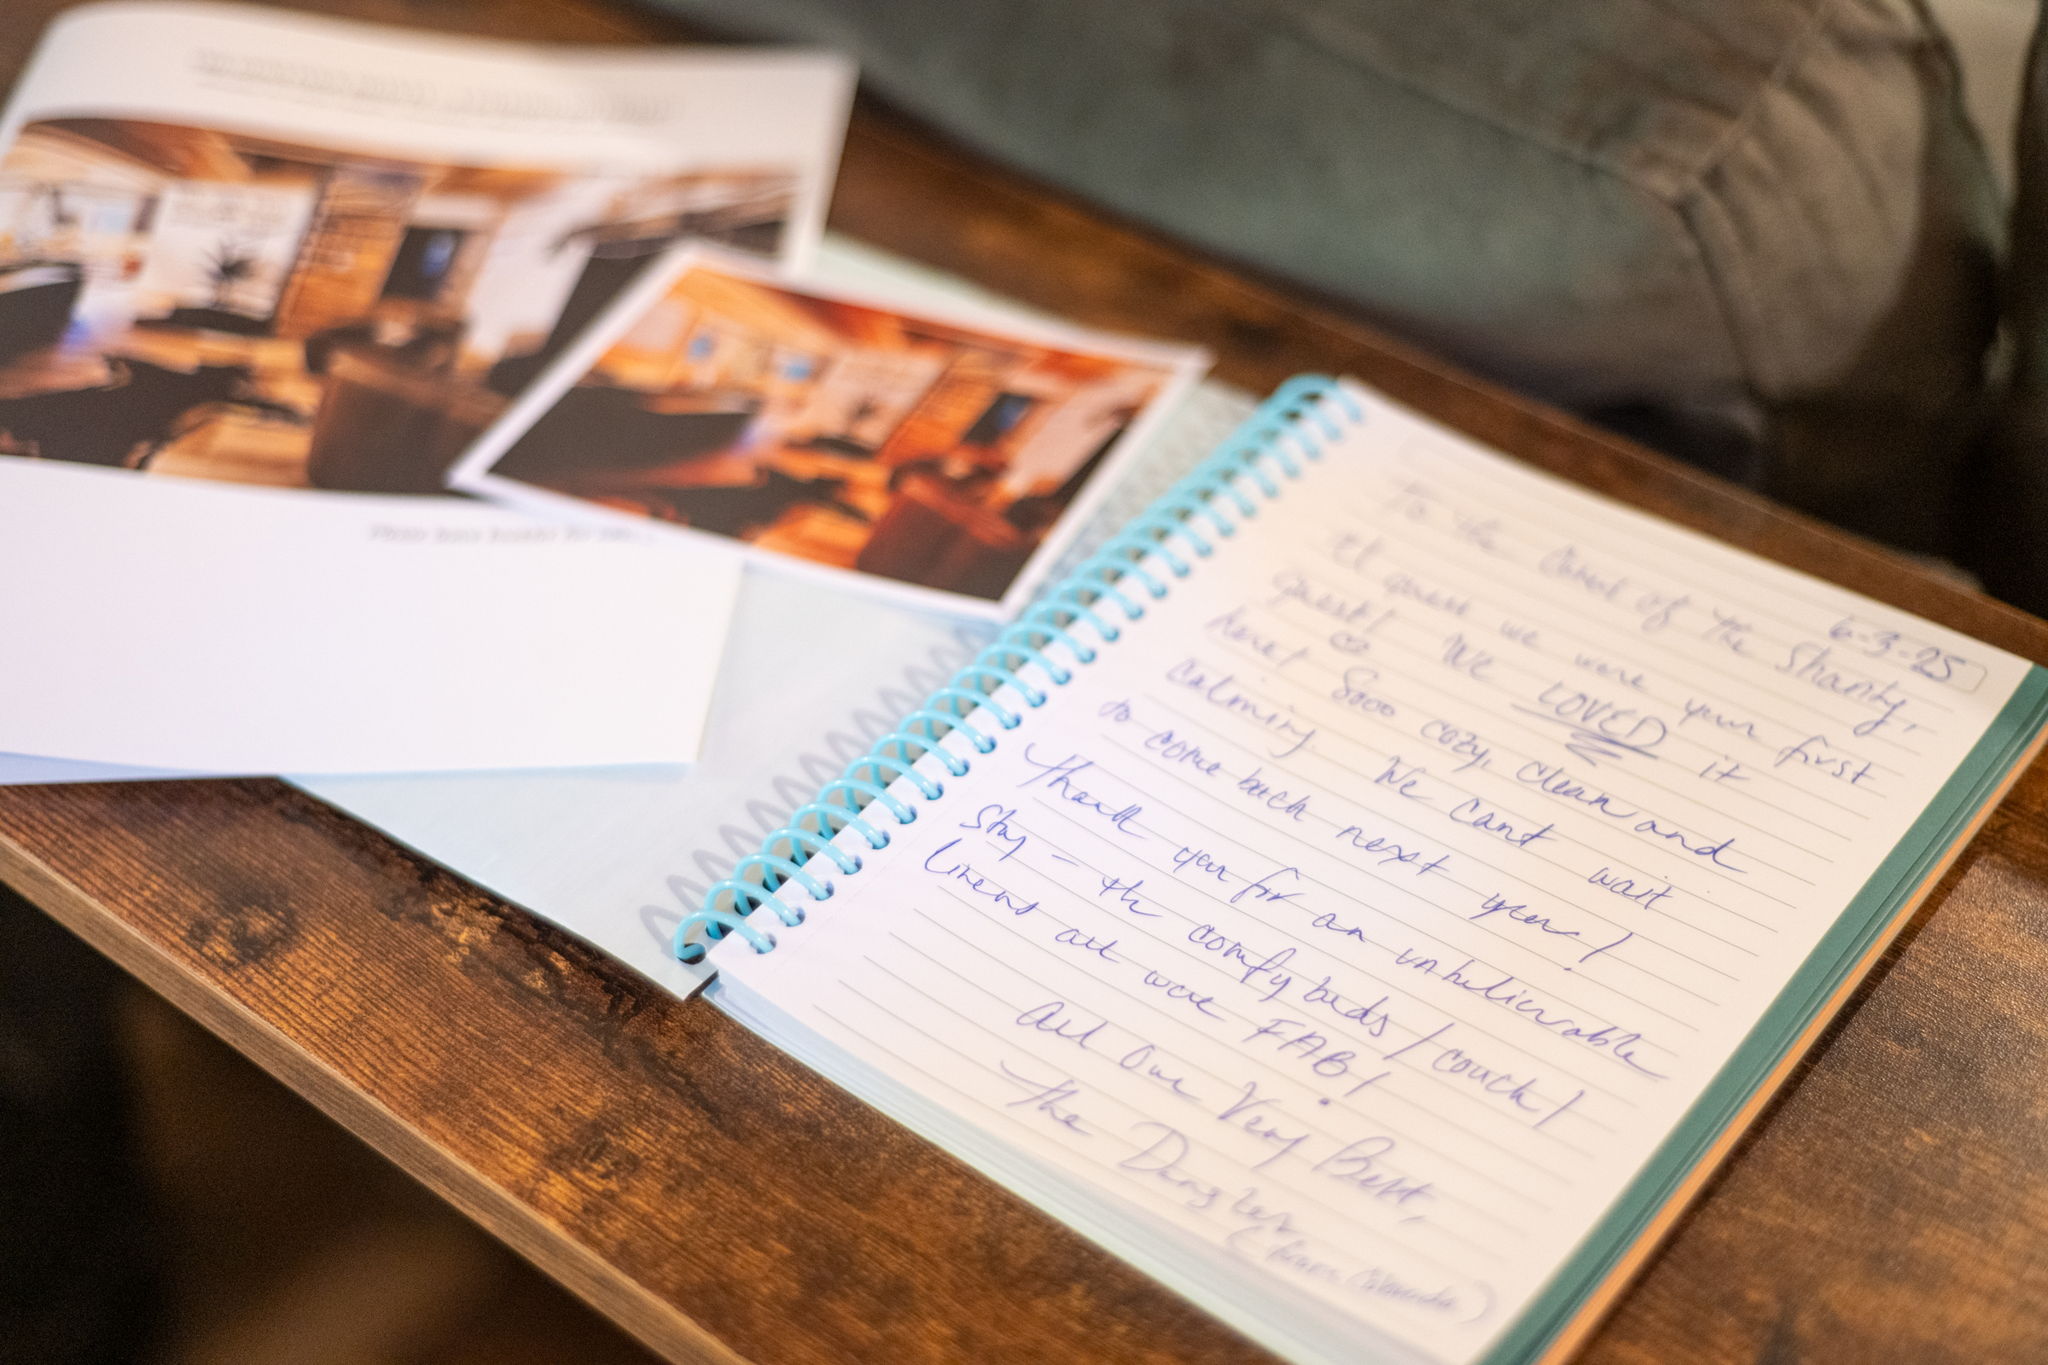 6-3-25
To the of the Shanty,
I guess we were your first
guest! We LOVED it
here! Sooo cozy, clean and
calming. We cant wait
to come back next year!
Thank you for an unbelievable
stay - the comfy beds / couch /
linens all were FAB!
All Our Very Best,
The